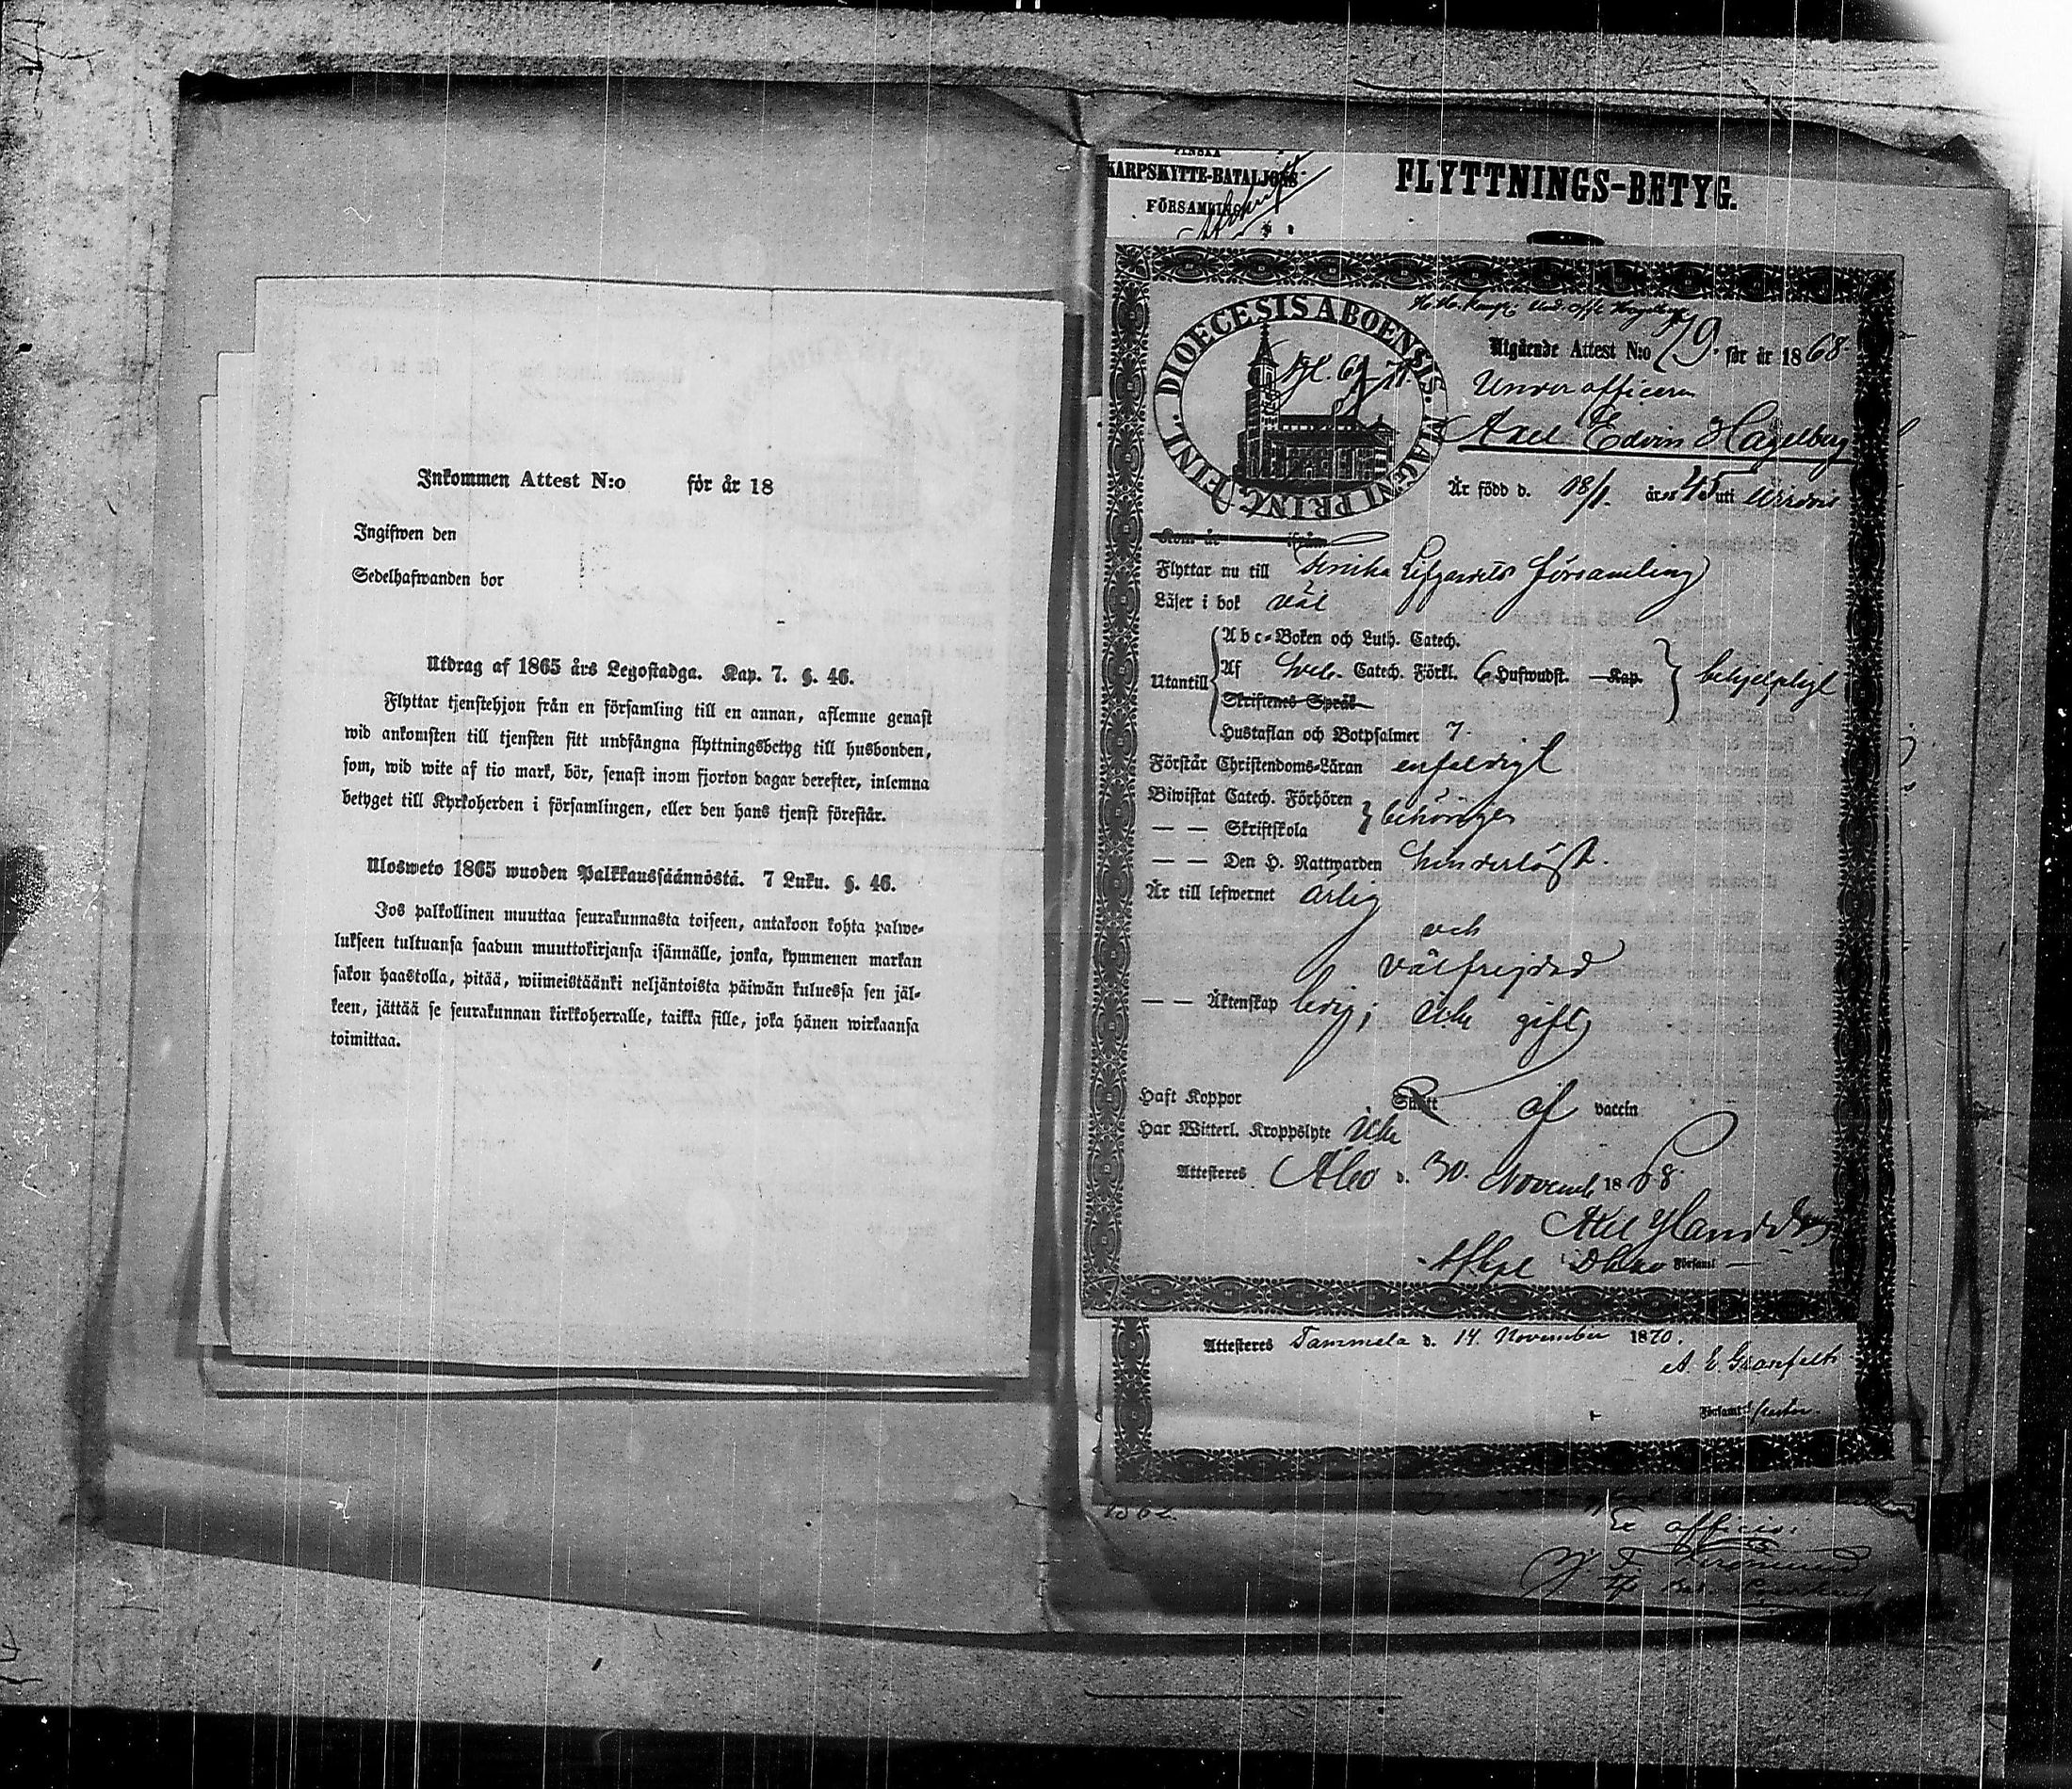 Inkommen Attest N:o för år 18
Ingifwen den
Sedelhafwanden bor
Utdrag af 1865 års Legostadga. Kap. 7. §. 46.
Flyttar tjenstehjon från en församling till en annan, aflemne genast
wid ankomsten till tjensten sitt undfångna flyttningsbetyg till husbonden,
som, wid wite af tio mark, bör, senast inom fjorton dagar derefter, inlemna
betyget till Kyrkoherden i församlingen, eller den hans tjenst förestår.
Ulosweto 1865 wuoden Palkkaussäännöstä. 7 Luku. §. 46.
Jos palkollinen muuttaa seurakunnasta toiseen, antakoon kohta palwe-
lukseen tultuansa saadun muuttokirjansa isännälle, jonka, kymmenen markan
sakon haastolla, pitää, wiimeistäänki neljäntoista päiwän kuluessa sen jäl-
keen, jättää se seurakunnan kirkkoherralle, taikka sille, joka hänen wirkaansa
toimittaa.
FINSKA
SKARPSKYTTE-BATALJONS
FÖRSAMLING
FLYTTNINGS-BETYG.
DIOECESIS ABOENSIS. MAGNI PRINC. FINL.
Utgående Attest N:o 79. för år 1868.
Underofficeren
Axel Edvin Hagelberg
Är född d. 18/1. år 45 uti
Kom år ifrån
Flyttar nu till Finska Lifgardets församling
Läser i bok väl
Abc-Boken och Luth. Catech.
Utantill Af Sveb. Catech. Förkl. 6 Hufwudst. Kap. behjelpligt
Skriftenes Språk
Hustaflan och Botpsalmer 7.
Förstår Christendoms-Läran enfaldigt
Biwistat Catech. Förhören behörigen
— — Skriftskola
— — Den H. Nattwarden hinderlöst.
Är till lefwernet ärlig
och
välfrejdad
— — Äktenskap ledig; icke gift
Haft Koppor Smitt af vaccin
Har Witterl. Kroppslyte icke
Attesteres Åbo d. 30. Novemb 1868.
Axel
Församl
Attesteres Tammela d. 14 November 1870.
A. E. Granfelt
Församl:s
1862.
Ex officio: